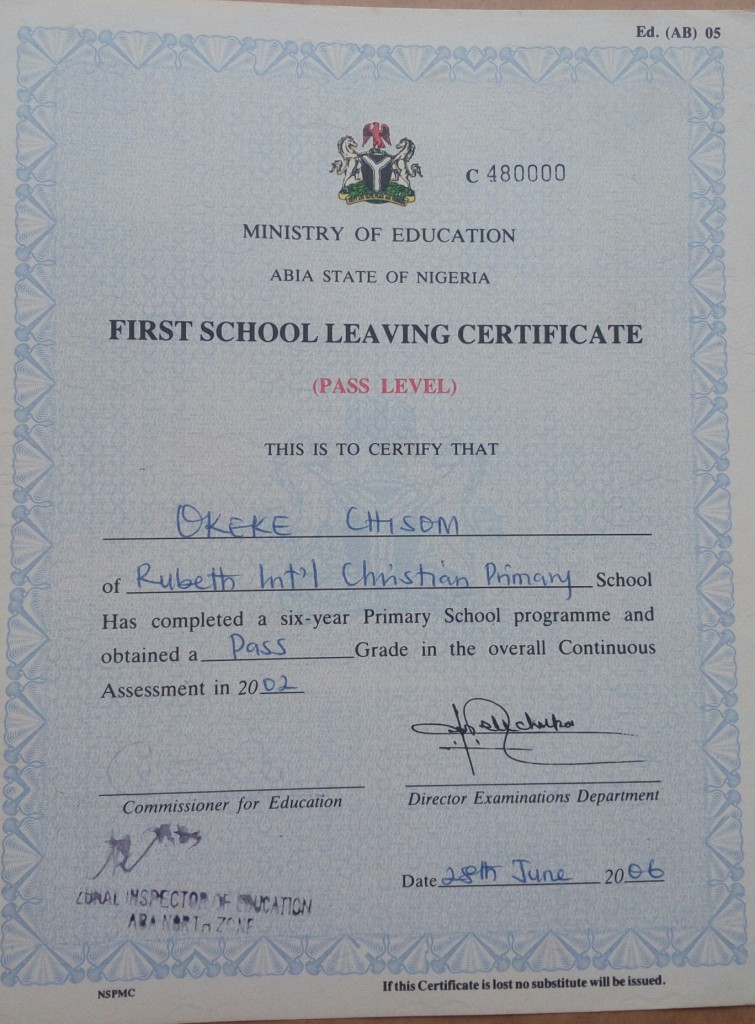 Ed. (AB) 05
C 480000
MINISTRY OF EDUCATION
ABIA STATE OF NIGERIA
FIRST SCHOOL LEAVING CERTIFICATE
(PASS LEVEL)
THIS IS TO CERTIFY THAT
OKEKE CHISOM
of Rubeth Int'l Christian Primary School
Has completed a six-year Primary School programme and
obtained a Pass Grade in the overall Continuous
Assessment in 2002
Commissioner for Education
Director Examinations Department
ZONAL INSPECTOR OF EDUCATION
ABA NORTH ZONE
Date 28th June 2006
NSPMC
If this Certificate is lost no substitute will be issued.